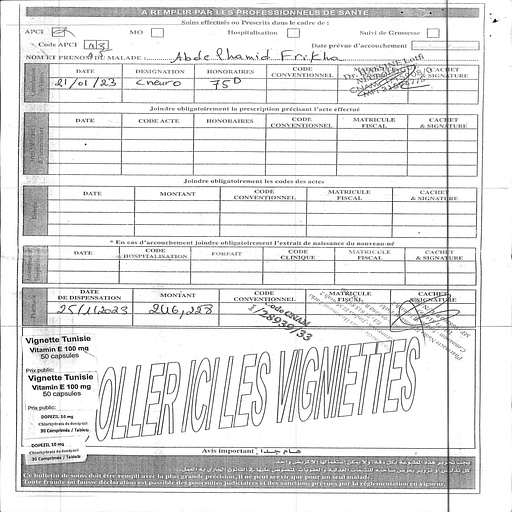 A REMPLIR PAR LES PROFESSIONNELS DE SANTE
Soins effectués ou Prescrits dans le cadre de :
APCI MO Hospitalisation Suivi de Grossesse
Code APCI Date prévue d'accouchement
NOM ET PRENOM DU MALADE : Abdelhamid Frikha
DATE DESIGNATION HONORAIRES CODE CONVENTIONNEL CACHET & SIGNATURE
21/01/23 Cneuro 75D
Joindre obligatoirement la prescription précisant l'acte effectué
DATE CODE ACTE HONORAIRES CODE CONVENTIONNEL MATRICULE FISCAL CACHET & SIGNATURE
Joindre obligatoirement les codes des actes
DATE MONTANT CODE CONVENTIONNEL MATRICULE FISCAL CACHET & SIGNATURE
* En cas d'accouchement joindre obligatoirement l'extrait de naissance du nouveau-né
DATE CODE HOSPITALISATION FORFAIT CODE CLINIQUE MATRICULE FISCAL CACHET & SIGNATURE
DATE DE DISPENSATION MONTANT CODE CONVENTIONNEL MATRICULE FISCAL CACHET & SIGNATURE
25/1/2023 246,228
Code CNAM
1/28939/33
Vignette Tunisie
Vitamin E 100 mg
50 capsules
Prix public:
Vignette Tunisie
Vitamin E 100 mg
50 capsules
Prix public:
DOPEZIL 10 mg
Chlorhydrate de donépézil
30 Comprimés / Tablets
DOPEZIL 10 mg
Chlorhydrate de donépézil
30 Comprimés / Tablets
OLLER ICI LES VIGNETTES
Avis important هــام جــدا
Ce bulletin de soins doit être rempli avec la plus grande précision, il ne peut servir que pour un seul malade.
Toute fraude ou fausse déclaration est passible des poursuites judiciaires et des sanctions prévues par la réglementation en vigueur.